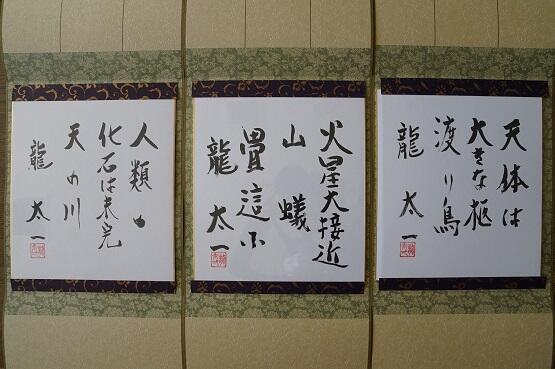 天体は
大きな柩
渡り鳥
龍太一
火星大接近
山蟻
畳這ふ
龍太一
人類の
化石は未完
天の川
龍太一